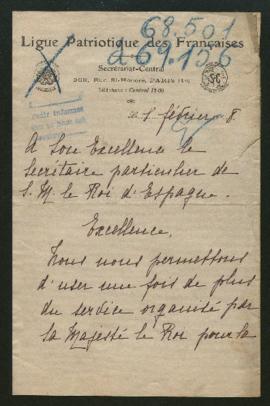 68.501
a 69.156
Ligue Patriotique des Françaises
Secrétariat-Central
368, Rue St-Honoré, PARIS (1er)
Téléphone : Central 13-00
Le 1 février 8
A Son Excellence le
Secrétaire particulier de
S. M. le Roi d'Espagne.
Excellence,
Nous nous permettons
d'user une fois de plus
du service organisé par
Sa Majesté le Roi pour la